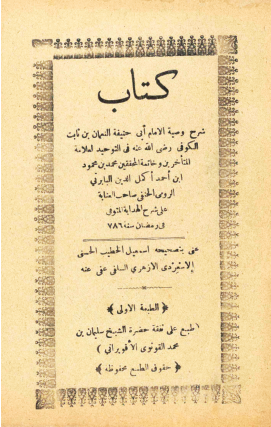 كتاب
شرح وصية الامام أبي حنيفة النعمان بن ثابت
الكوفى رضى الله عنه فى التوحيد لعلامة
المتأخرين وخاتمة المحققين محمد بن محمود
ابن احمد أكمل الدين البابرتى
الرومى الحنفى صاحب العناية
على شرح الهداية المتوفى
فى رمضان سنة ٧٨٦
عنى بتصحيحه اسمعيل الخطيب الحسنى
الازهرى السلفى عفى عنه
﴿ الطبعة الاولى ﴾
( طبع على نفقة حضرة الشيخ سليمان بن
محمد القونوى )
﴿ حقوق الطبع محفوظه ﴾